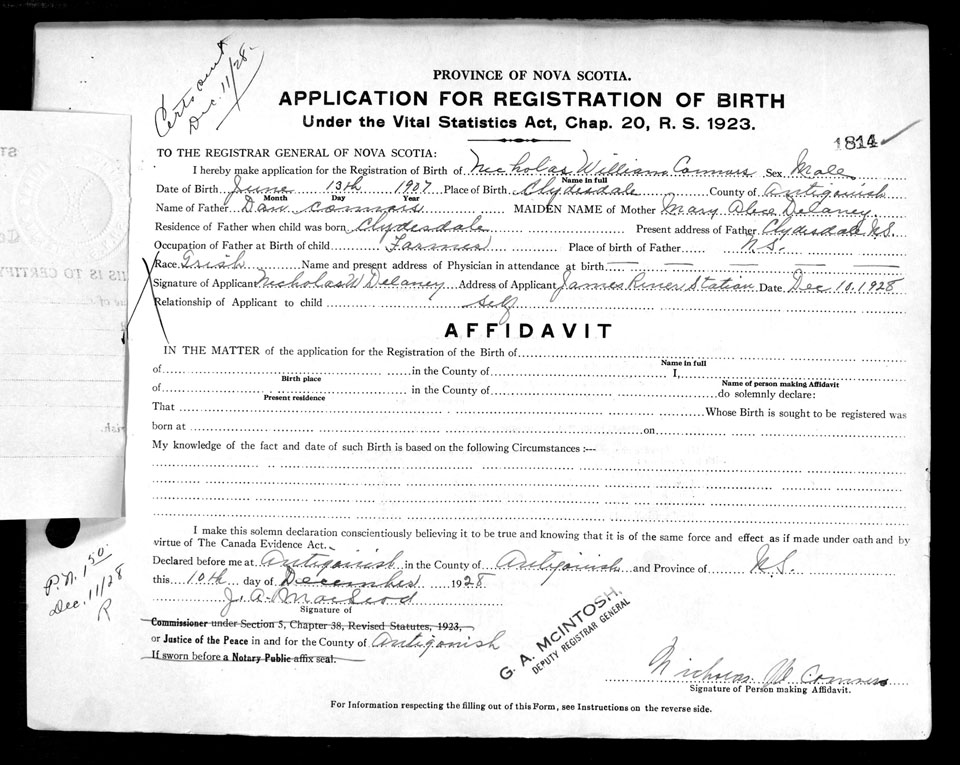 Certs out
Dec. 11/28.
PROVINCE OF NOVA SCOTIA.
APPLICATION FOR REGISTRATION OF BIRTH
Under the Vital Statistics Act, Chap. 20, R. S. 1923.
1814
TO THE REGISTRAR GENERAL OF NOVA SCOTIA:
I hereby make application for the Registration of Birth of Nicholas William Connors Sex Male
Name in full
Date of Birth June 13th 1907 Place of Birth Clydesdale County of Antigonish
Month Day Year
Name of Father Dan Connors MAIDEN NAME of Mother Mary Alice Delaney
Residence of Father when child was born Clydesdale Present address of Father Clydesdale N.S.
Occupation of Father at Birth of child Farmer Place of Birth of Father N.S.
Race Irish Name and present address of Physician in attendance at birth
Signature of Applicant Nicholas W Delaney Address of Applicant James River Station Date Dec 10, 1928
Relationship of Applicant to child self
AFFIDAVIT
IN THE MATTER of the application for the Registration of the Birth of
Name in full
of in the County of I,
Birth place Name of person making Affidavit
of in the County of do solemnly declare:
Present residence
That Whose Birth is sought to be registered was
born at on
My knowledge of the fact and date of such Birth is based on the following Circumstances :---
I make this solemn declaration conscientiously believing it to be true and knowing that it is of the same force and effect as if made under oath and by
virtue of The Canada Evidence Act.
Declared before me at Antigonish in the County of Antigonish and Province of N.S.
this 10th day of December 1928
J. A. MacLeod
Signature of
Commissioner under Section 5, Chapter 38, Revised Statutes, 1923,
or Justice of the Peace in and for the County of Antigonish
If sworn before a Notary Public affix seal.
P.N. 1.50
Dec. 11/28
R
G. A. McINTOSH,
DEPUTY REGISTRAR GENERAL
Nicholas W Connors
Signature of Person making Affidavit.
For Information respecting the filling out of this Form, see Instructions on the reverse side.